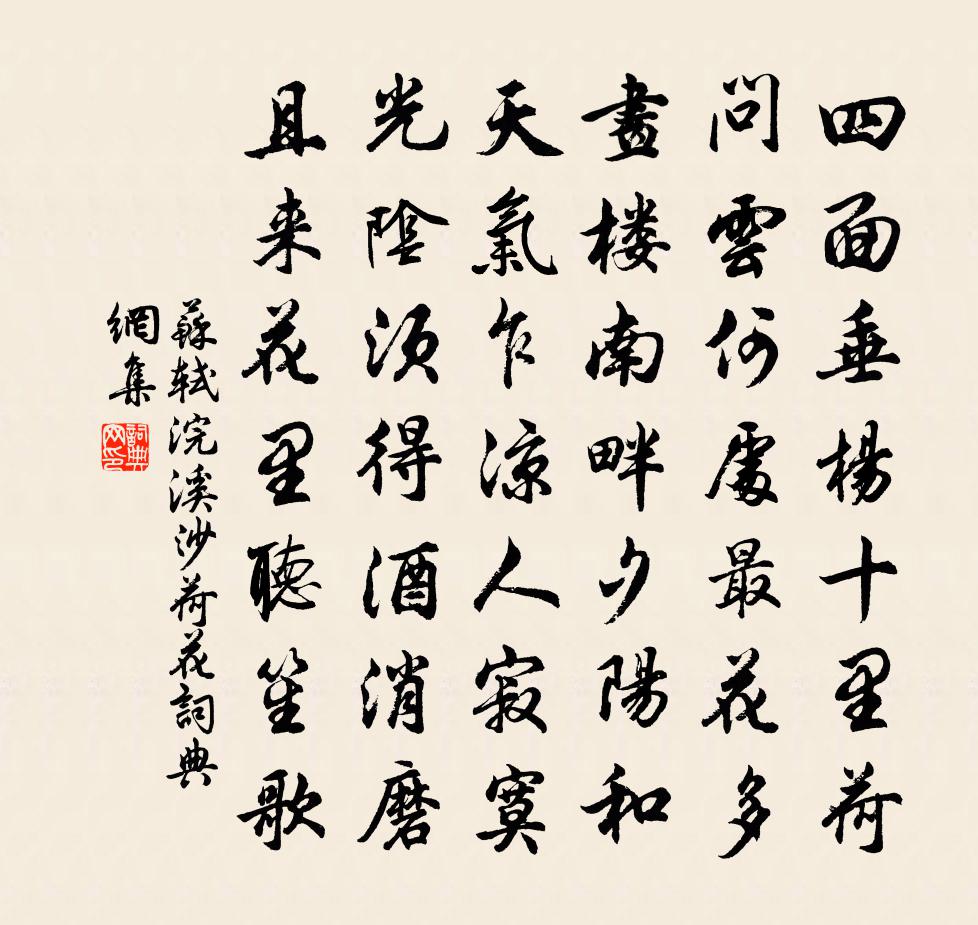 四面垂楊十里荷
問雲何處最花多
畫楼南畔夕陽和
天氣乍凉人寂寞
光陰須得酒消磨
且来花里聽笙歌
蘇軾浣溪沙荷花詞典
網集
詞典
网印